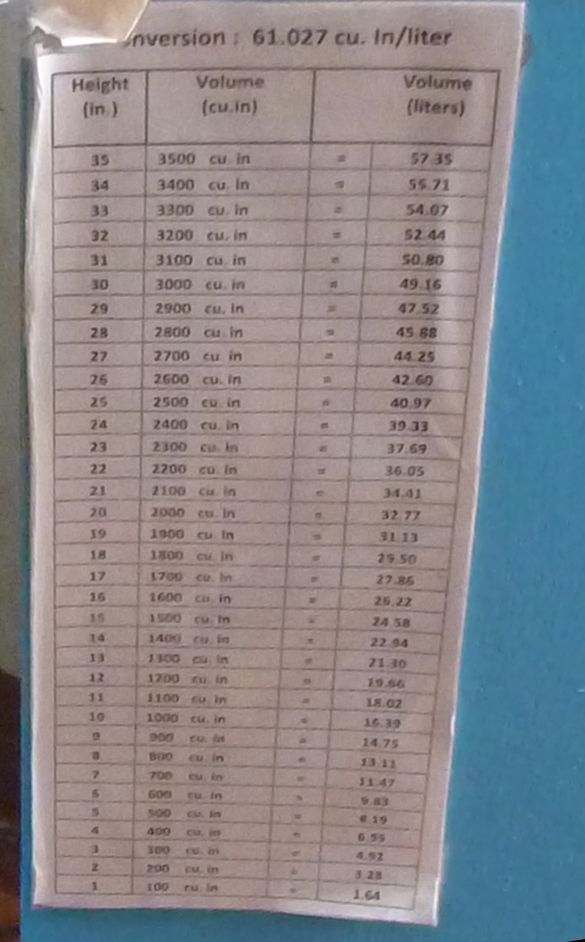 nversion : 61.027 cu. In/liter
Height Volume Volume
(in.) (cu.in) (liters)
35 3500 cu. in = 57.35
34 3400 cu. in = 55.71
33 3300 cu. in = 54.07
32 3200 cu. in = 52.44
31 3100 cu. in = 50.80
30 3000 cu. in = 49.16
29 2900 cu. in = 47.52
28 2800 cu. in = 45.88
27 2700 cu. in = 44.25
26 2600 cu. in = 42.60
25 2500 cu. in = 40.97
24 2400 cu. in = 39.33
23 2300 cu. in = 37.69
22 2200 cu. in = 36.05
21 2100 cu. in = 34.41
20 2000 cu. in = 32.77
19 1900 cu. in = 31.13
18 1800 cu. in = 29.50
17 1700 cu. in = 27.86
16 1600 cu. in = 26.22
15 1500 cu. in = 24.58
14 1400 cu. in = 22.94
13 1300 cu. in = 21.30
12 1200 cu. in = 19.66
11 1100 cu. in = 18.02
10 1000 cu. in = 16.39
9 900 cu. in = 14.75
8 800 cu. in = 13.11
7 700 cu. in = 11.47
6 600 cu. in = 9.83
5 500 cu. in = 8.19
4 400 cu. in = 6.55
3 300 cu. in = 4.92
2 200 cu. in = 3.28
1 100 cu. in = 1.64